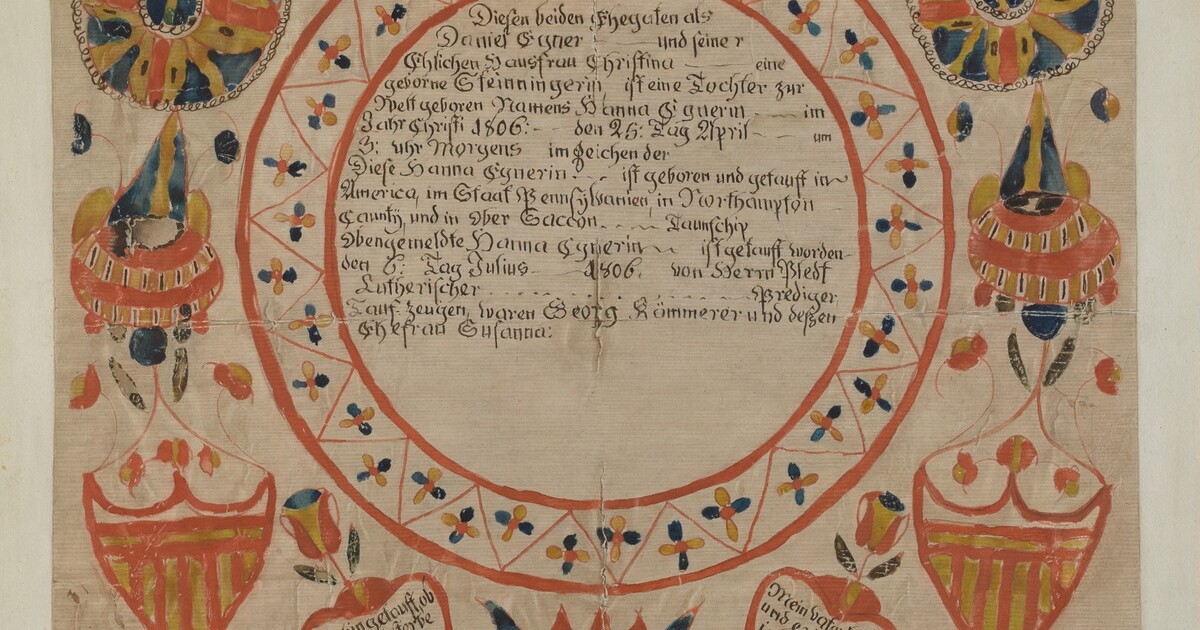 Diesen beiden Ehegaten als
Daniel Egner und seiner
Ehlichen Hausfrau Christina eine
geborne Steinningerin, ist eine Tochter zur
Welt geboren Namens Hanna Egnerin im
Jahr Christi 1806: den 25: Tag April um
3: uhr Morgens im Zeichen der
Diese Hanna Egnerin: ist geboren und getauft in
America, im Staat Pennsÿlvanien, in Northampton
Caunty, und in Ober Saccon Taunschip
Obengemeldte Hanna Egnerin ist getauft worden
den 6: Tag Julius 1806. von Herrn
Lutherischer Prediger,
Tauf-zeugen, waren Georg Kömmerer und deßen
Ehefrau Susanna:
getauft, ob
Mein
und